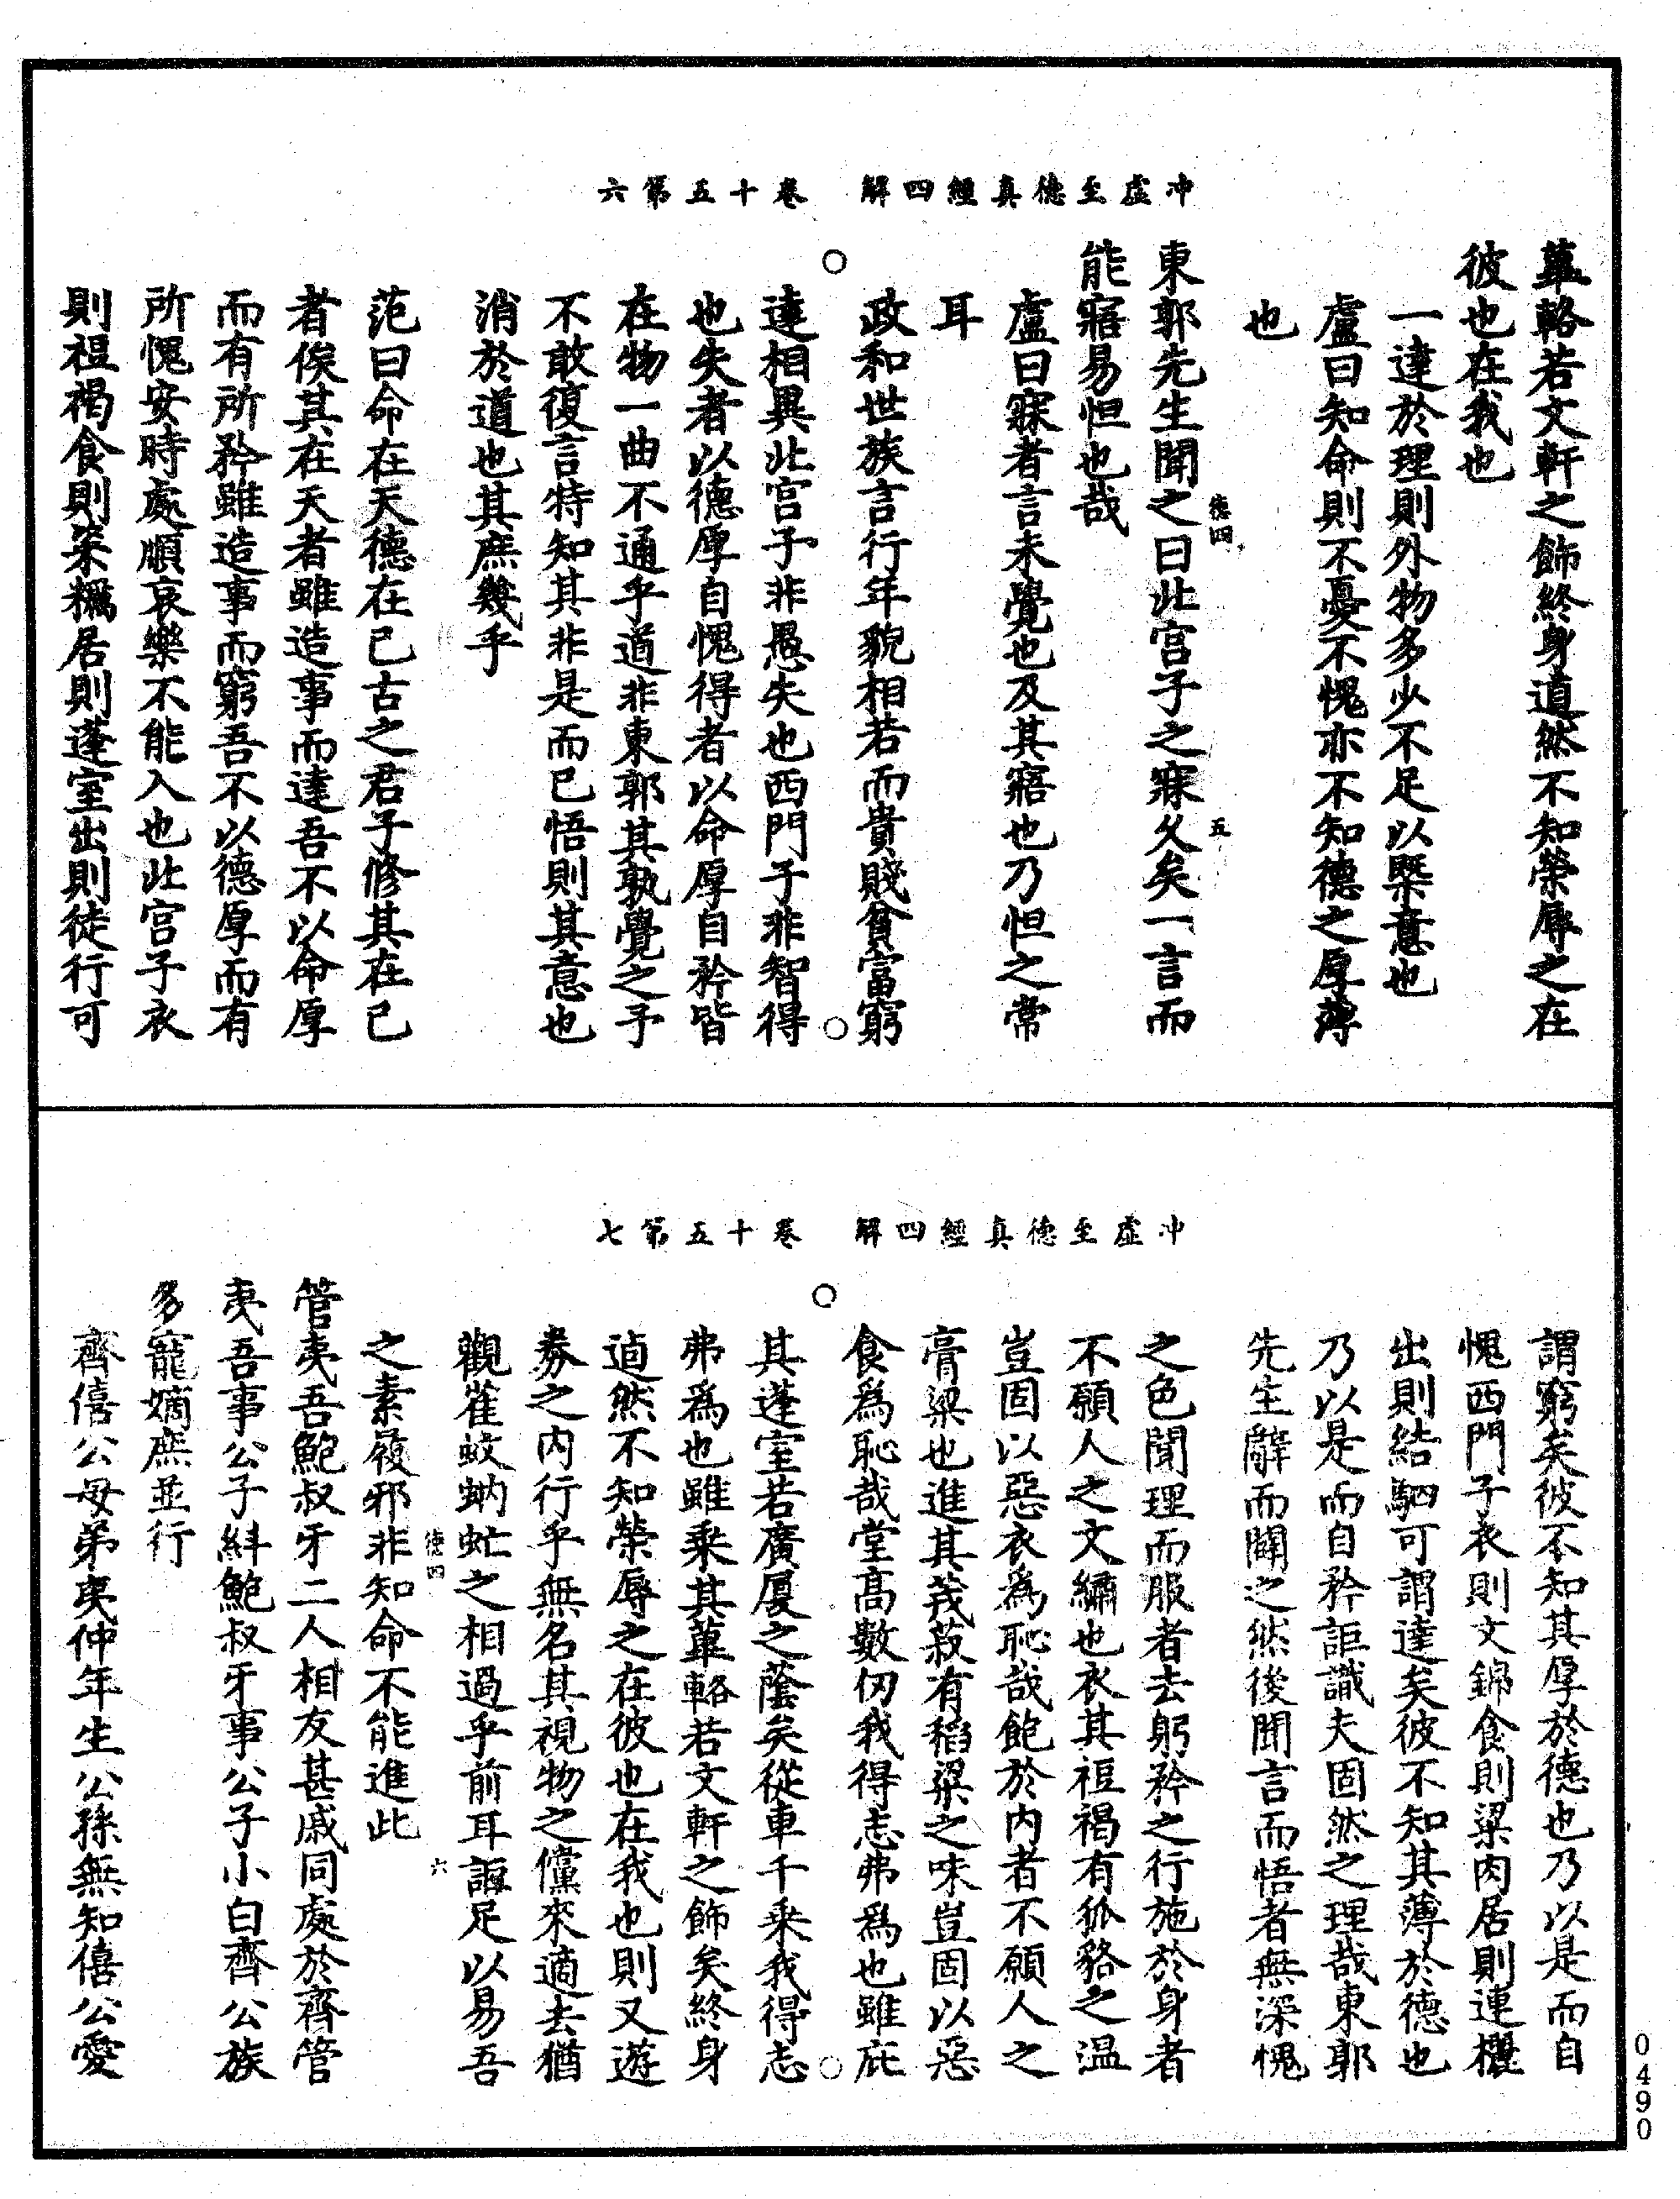 冲虛至德真經四解　卷十五第六
蓽輅若文軒之飾終身逌然不知榮辱之在
彼也在我也
一達於理則外物多少不足以槩意也
盧曰知命則不憂不愧亦不知德之厚薄
也
德四
五
東郭先生聞之曰此宫子之寐久矣一言而
能寤易怛也哉
盧曰寐者言未覺也及其寤也乃怛之常
耳
政和世族言行年貌相若而貴賤貧富窮
達相異此宫子非愚失也西門子非智得
也失者以德厚自愧得者以命厚自矜皆
在物一曲不通乎道非東郭其孰覺之予
不敢復言特知其非是而已悟則其意也
消於道也其庶幾乎
范曰命在天德在己古之君子修其在己
者俟其在天者雖造事而達吾不以命厚
而有所矜雖造事而窮吾不以德厚而有
所愧安時處順哀樂不能入也此宫子衣
則裋褐食則粢糲居則蓬室出則徒行可
冲虛至德真經四解　卷十五第七
謂窮矣彼不知其厚於德也乃以是而自
愧西門子衣則文錦食則粱肉居則連欐
出則結駟可謂達矣彼不知其薄於德也
乃以是而自矜詎識夫固然之理哉東郭
先生辭而闢之然後聞言而悟者無深愧
之色聞理而服者去躬矜之行施於身者
不願人之文繡也衣其裋褐有狐貉之温
豈固以惡衣為恥哉飽於内者不願人之
膏粱也進其茙菽有稻粱之味豈固以惡
食為恥哉堂高數仞我得志弗為也雖庇
其蓬室若廣厦之蔭矣從車千乗我得志
弗為也雖乗其蓽輅若文軒之飾矣終身
逌然不知榮辱之在彼也在我也則又遊
券之内行乎無名其視物之儻來適去猶
觀雀蚊蚋虻之相過乎前耳詎足以易吾
之素履邪非知命不能進此
德四
六
管夷吾鮑叔牙二人相友甚戚同處於齊管
夷吾事公子糾鮑叔牙事公子小白齊公族
多寵嫡庶並行
齊僖公母弟夷仲年生公孫無知僖公愛
0490